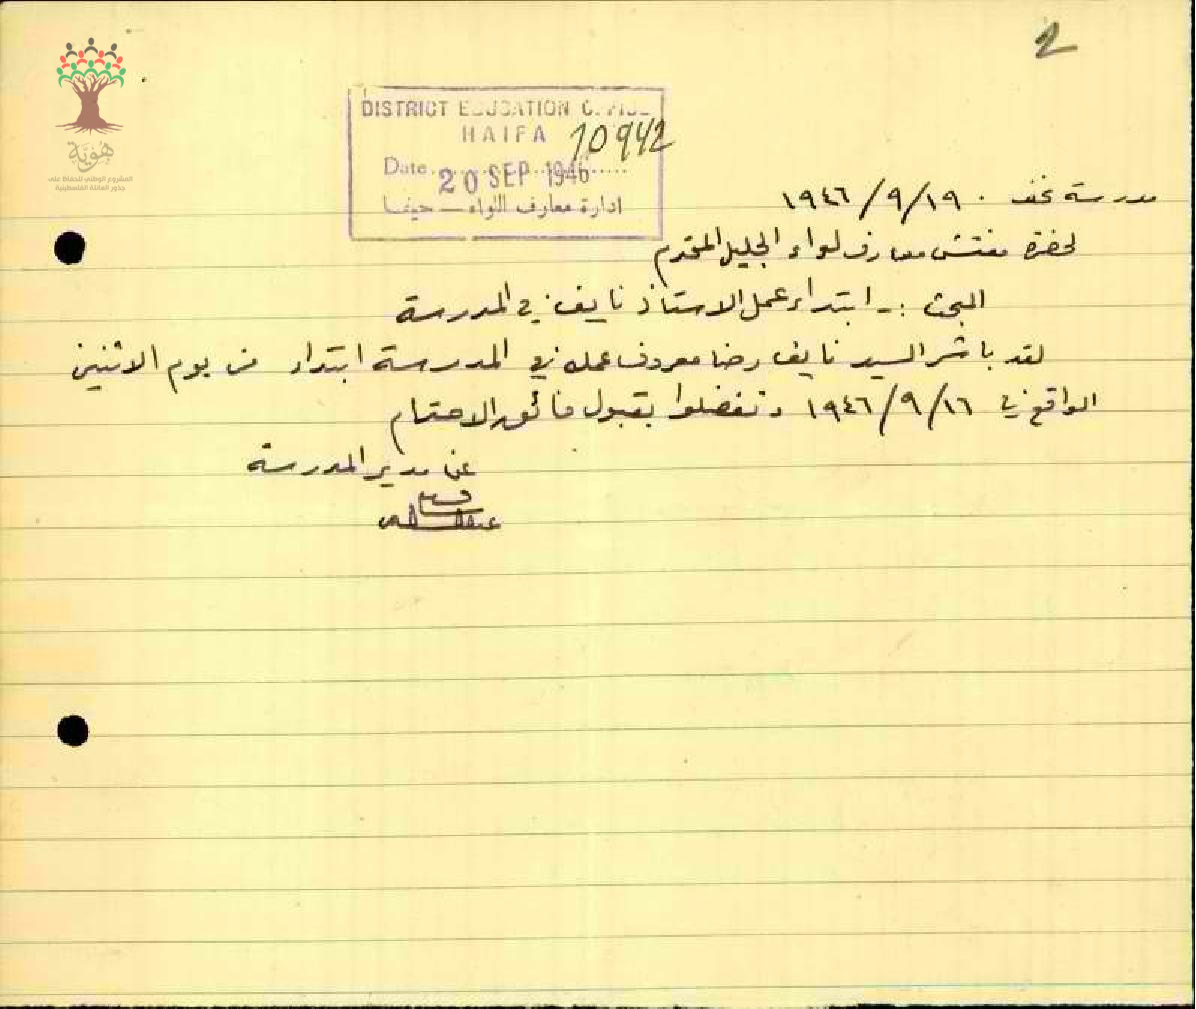 2
هوية
المشروع الوطني للحفاظ على
جذور العائلة الفلسطينية
DISTRICT EDUCATION OFFICE
HAIFA
10942
Date 20 SEP 1946
ادارة معارف اللواء — حيفا
مدرسة نحف ١٩/٩/١٩٤٦
لحضرة مفتش معارف لواء الجليل المحترم
المبحث :- ابتداء عمل الاستاذ نايف في المدرسة
لقد باشر السيد نايف رضا معروف عمله في المدرسة ابتداء من يوم الاثنين
الواقع في ١٦/٩/١٩٤٦ وتفضلوا بقبول فائق الاحترام
عن مدير المدرسة